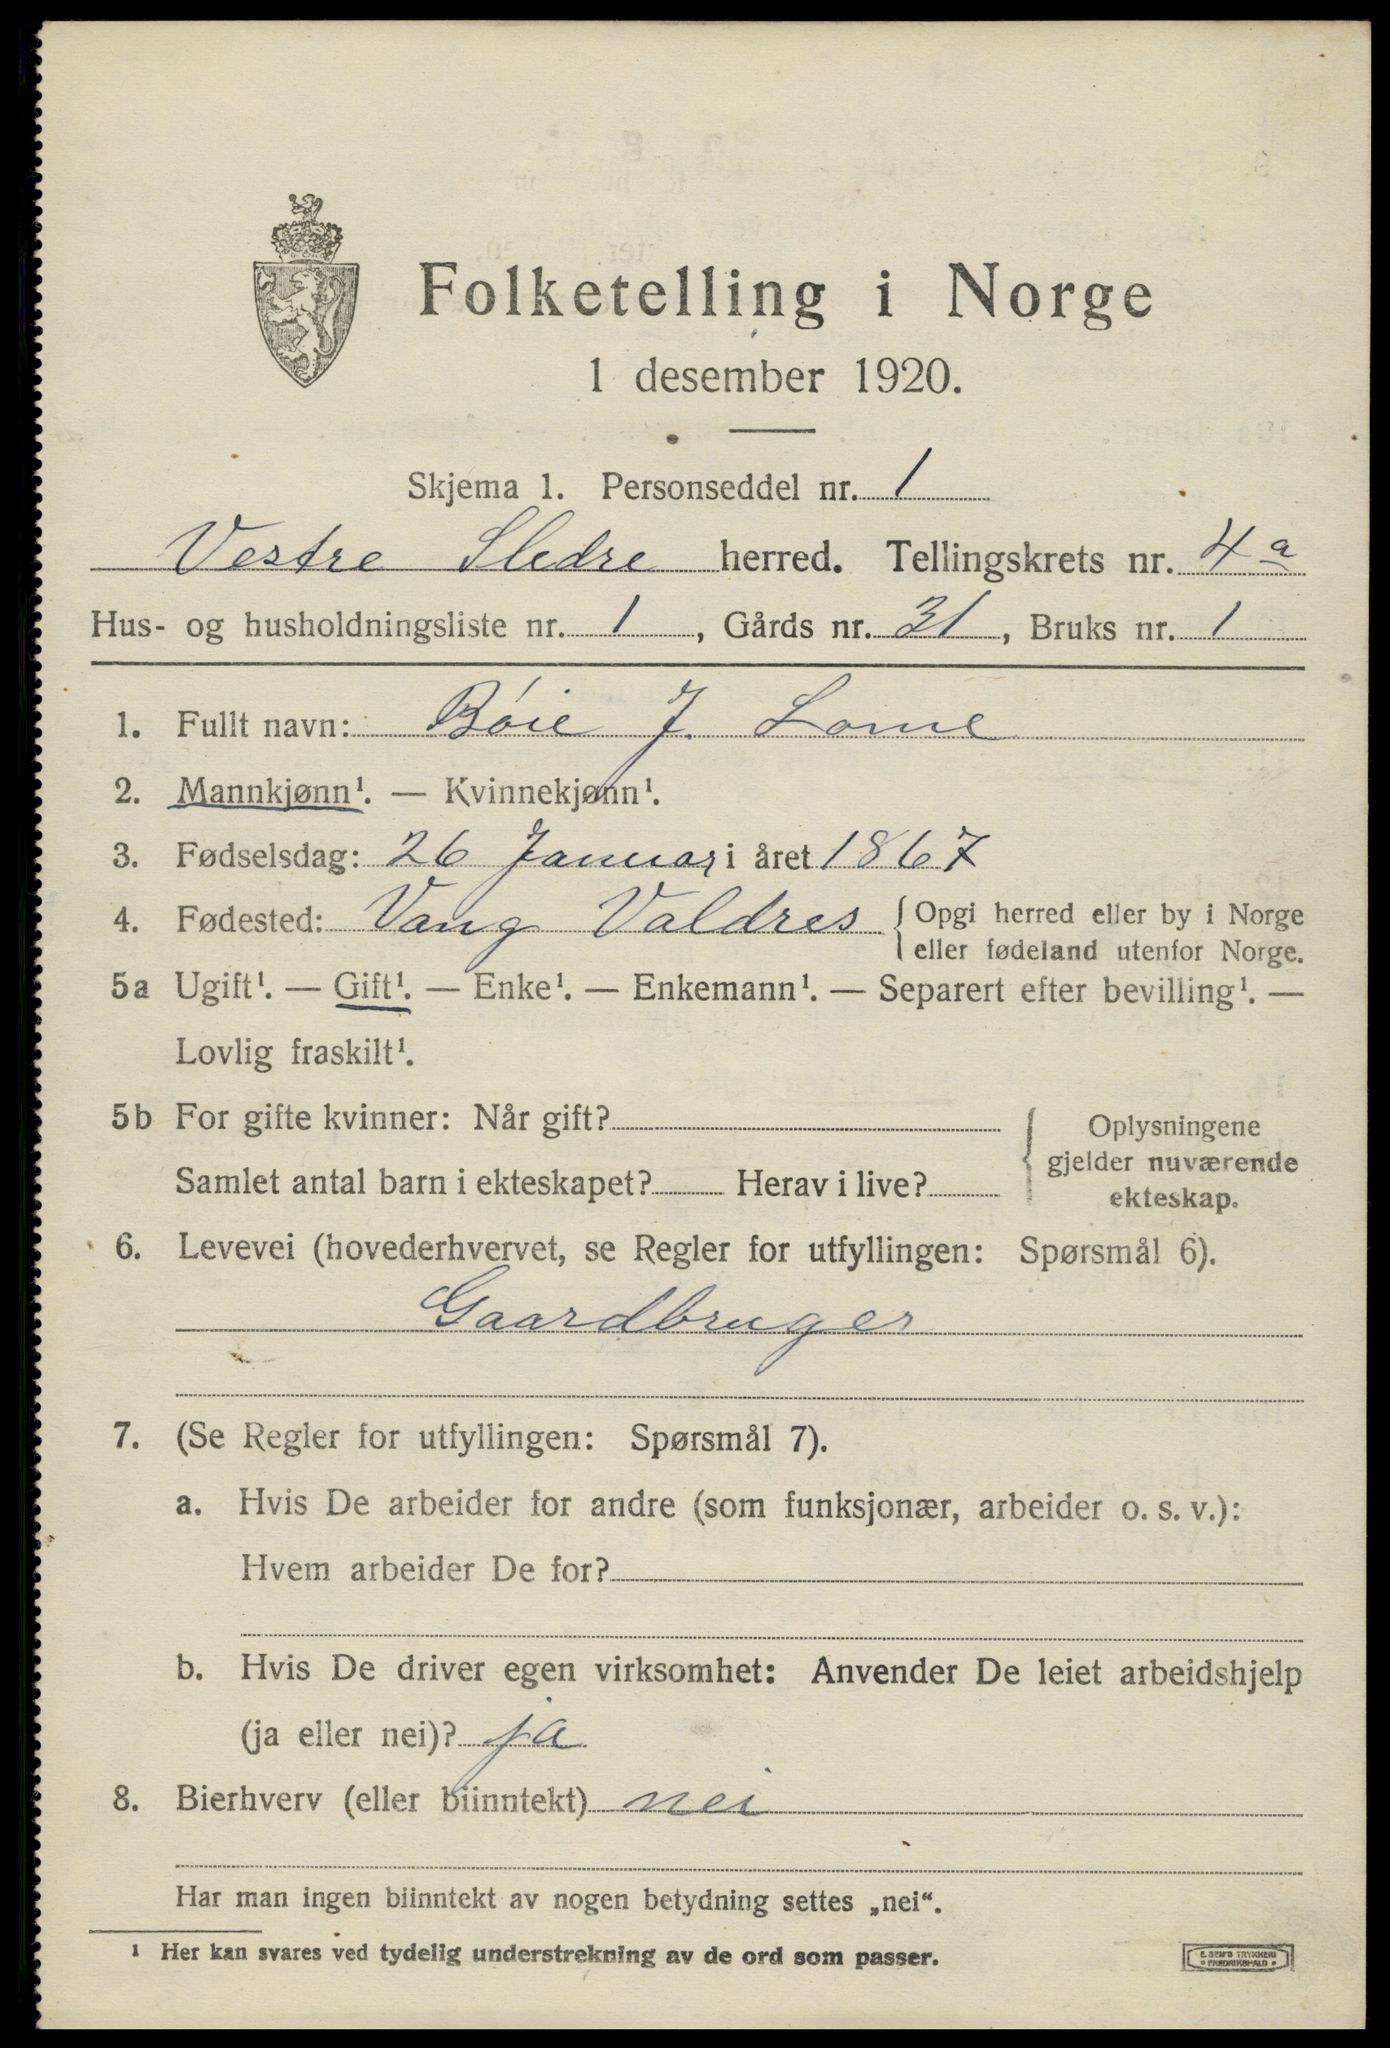 Folketelling i Norge
1 desember 1920.
Skjema 1. Personseddel nr. 1
Vestre Slidre herred. Tellingskrets nr. 4a
Hus- og husholdningsliste nr. 1, Gårds nr. 31, Bruks nr. 1
1. Fullt navn: Bóie J. Lome
2. Mannkjønn¹. — Kvinnekjønn¹.
3. Fødselsdag: 26 Januar i året 1867
4. Fødested: Vang Valdres {Opgi herred eller by i Norge
eller fødeland utenfor Norge.
5a Ugift¹. — Gift¹. — Enke¹. — Enkemann¹. — Separert efter bevilling¹. —
Lovlig fraskilt¹.
5b For gifte kvinner: Når gift?
Samlet antal barn i ekteskapet? Herav i live?
{Oplysningene
gjelder nuværende
ekteskap.
6. Levevei (hovederhvervet, se Regler for utfyllingen: Spørsmål 6).
Gaardbruger
7. (Se Regler for utfyllingen: Spørsmål 7).
a. Hvis De arbeider for andre (som funksjonær, arbeider o. s. v.):
Hvem arbeider De for?
b. Hvis De driver egen virksomhet: Anvender De leiet arbeidshjelp
(ja eller nei)? ja
8. Bierhverv (eller biinntekt) nei
Har man ingen biinntekt av nogen betydning settes „nei“.
¹ Her kan svares ved tydelig understrekning av de ord som passer.
E. SEM'S TRYKKERI
FREDRIKSHALD